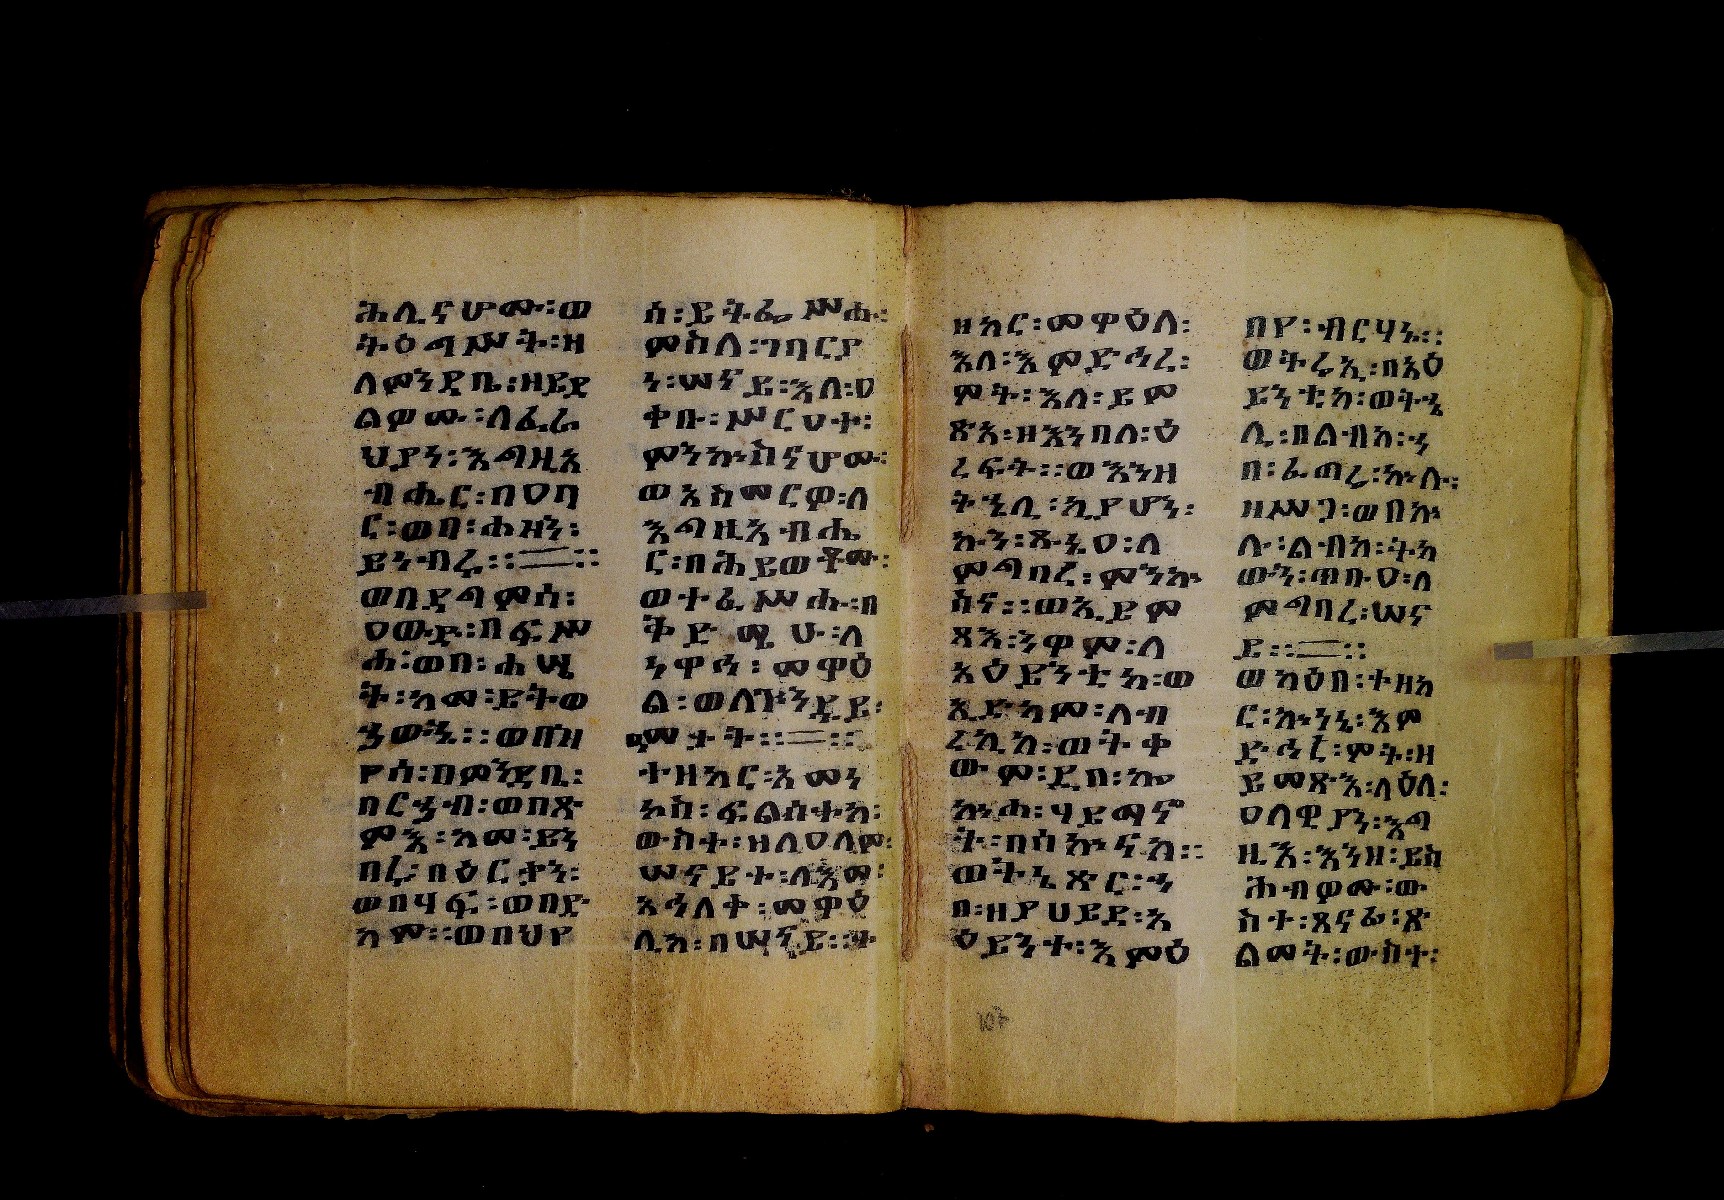 ሕሊናሆሙ፡ወ
ትዕግሥት፡ዘ
ለምንዳቤ፡ዘይደ
ልዎሙ፡ለፈራ
ህያን፡እግዚአ
ብሔር፡በዐባ
ር፡ወበ፡ሐዘን፡
ይንብሩ፡፡፡፡
ወበደጋምሰ፡
ዐውድ፡በፍሥ
ሐ፡ወበ፡ሐሤ
ት፡ከመ፡ይትወ
ኃወኁ፡፡ወበዘ
የሰ፡በምንዳቤ፡
በርኃብ፡ወበጽ
ምእ፡ከመ፡ይን
በሩ፡በዕርቃን፡
ወበሃፍ፡ወበድ
ካም፡፡ወበህየ
ሰ፡ይትፌሥሑ፡
ምስለ፡ገባርያ
ን፡ሠናይ፡እለ፡ዐ
ቀቡ፡ሥርዐተ፡
ምንኵስናሆሙ፡
ወአስመርዎ፡ለ
እግዚአብሔ
ር፡በሕይወቶሙ፡
ወተፈሥሑ፡በ
ትድሜሁ፡ለ
ንዋኅ፡መዋዕ
ል፡ወለጕንደይ፡
ዓመታት፡፡፡፡
ተዘከር፡አመን
ኮስ፡ፍልሰተከ፡
ውስተ፡ዘለዐለም፡
ሠናይተ፡ለእመ፡
አኅለቀ፡መዋዕ
ሊከ፡በሠናይ፡፡
ዘክር፡መዋዕለ፡
እለ፡እምድኅረ፡
ሞት፡እለ፡ይም
ጽአ፡ዘእንበለ፡ዕ
ረፍት፡፡ወእንዘ
ትኄሊ፡ኪያሆን፡
ኩን፡ጽኑዐ፡ለ
ምግባረ፡ምንኵ
ስና፡፡ወኢይም
ጻእ፡ንዋም፡ለ
አዕይንቲከ፡ወ
ኢድካም፡ለብ
ረኪከ፡ወትቀ
ውም፡ደበ፡ኰ
ኵሐ፡ሃይማኖ
ት፡በሰኵናከ፡፡
ወትኔጽር፡ን
በ፡ዘያህይድ፡አ
ዕይንተ፡እምዕ
በየ፡ብርሃኑ፡፡
ወትሬኢ፡በአዕ
ይንቲከ፡ወትኄ
ሊ፡በልብከ፡ኀ
በ፡ፈጣሬ፡ኵሉ፡
ዘሥጋ፡ወበኵ
ሉ፡ልብከ፡ትከ
ውን፡ጠቡዐ፡ለ
ምግባረ፡ሠና
ይ፡፡፡፡
ወካዕበ፡ተዘከ
ር፡ኵነኔ፡እም
ድኅረ፡ሞት፡ዘ
ይመጽእ፡ላዕለ፡
ዐላዊያን፡እግ
ዚእ፡እንዘ፡ይስ
ሕብዎሙ፡ው
ስተ፡ጸናፊ፡ጽ
ልመት፡ውስተ፡
107